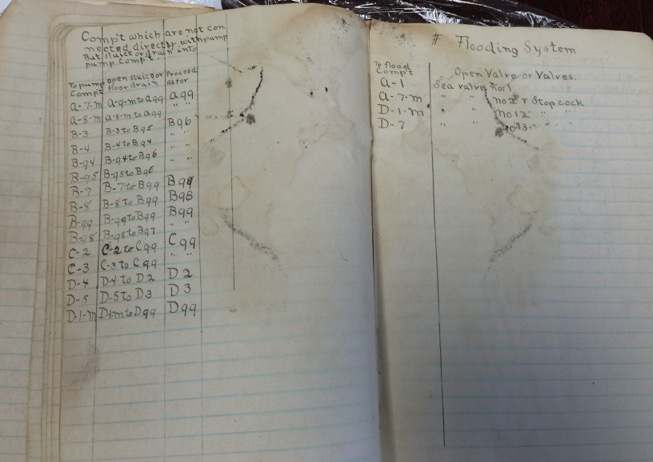 Comp't which are not con
nected director with pump
But sluice or drain into
pump Compt.
To pump Compt Open sluice or floor drain Proceed as for
A-7-m A-9-m to A99 A99
A-8-m A-8-m to A99 " "
B-3 B-3 to B96 B96
B-4 B-4 to B94 " "
B-94 B-94 to B96 " "
B-95 B-95 to B96 " "
B-7 B-7 to B99 B99
B-8 B-8 to B99 B98
B-99 B-99 to B99 B99
B-98 B-98 to B97 " "
C-2 C-2 to C99 C99
C-3 C-3 to C99 " "
D-4 D-4 to D2 D2
D-5 D-5 to D3 D3
D-1-m D-1-m to D99 D99
# Flooding System
To flood Compt Open Valve or Valves.
A-1 Sea valve No 1
A-7-m " " No 2 & Stop cock
D-1-m " " No 12 " "
D-7 " " No 13 " "